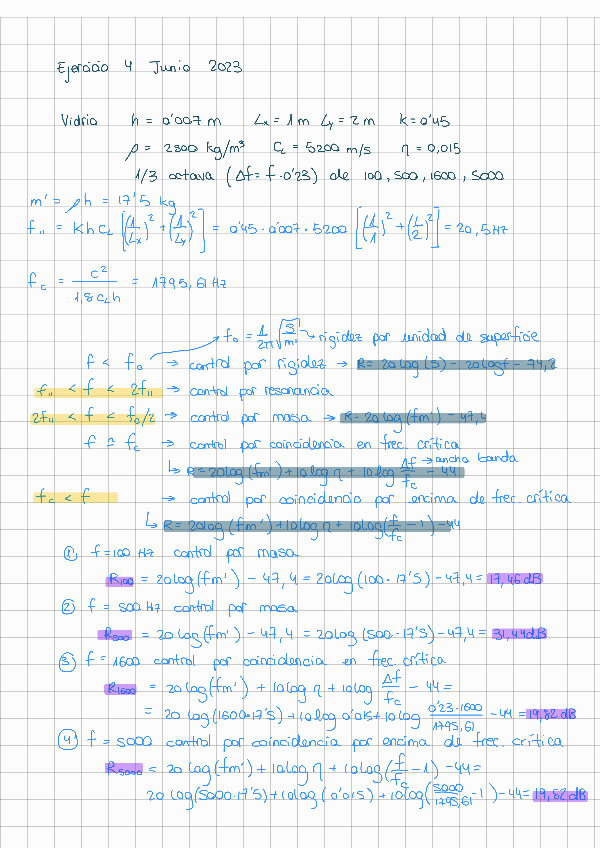 Ejercicio 4 Junio 2023
Vidrio h = 0'007 m Lx = 1 m Ly = 2 m k = 0'45
ρ = 2500 kg/m³ CL = 5200 m/s η = 0,015
1/3 octava (Δf = f · 0'23) de 100, 500, 1600, 5000
m' = ρh = 17'5 kg
f₁₁ = K h CL [(1/Lx)² + (1/Ly)²] = 0'45 · 0'007 · 5200 [(1/1)² + (1/2)²] = 20,5 Hz
fc = c² / 1,8 cL h = 1795,61 Hz
f₀ = 1/2π √(s/m') → rigidez por unidad de superficie
f < f₀ → control por rigidez → R = 20 log (s) - 20 log f - 74,2
f₁₁ < f < 2f₁₁ → control por resonancia
2f₁₁ < f < fc/2 → control por masa → R = 20 log (fm') - 47,4
f ≈ fc → control por coincidencia en frec. crítica
↳ R = 20 log (fm') + 10 log η + 10 log Δf/fc - 44 → ancho banda
fc < f → control por coincidencia por encima de frec. crítica
↳ R = 20 log (fm') + 10 log η + 10 log (f/fc - 1) - 44
① f = 100 Hz control por masa
R₁₀₀ = 20 log (fm') - 47,4 = 20 log (100 · 17'5) - 47,4 = 17,46 dB
② f = 500 Hz control por masa
R₅₀₀ = 20 log (fm') - 47,4 = 20 log (500 · 17'5) - 47,4 = 31,44 dB
③ f = 1600 control por coincidencia en frec. crítica
R₁₆₀₀ = 20 log (fm') + 10 log η + 10 log Δf/fc - 44 =
= 20 log (1600 · 17'5) + 10 log 0'015 + 10 log 0'23·1600/1795,61 - 44 = 19,82 dB
④ f = 5000 control por coincidencia por encima de frec. crítica
R₅₀₀₀ = 20 log (fm') + 10 log η + 10 log (f/fc - 1) - 44 =
20 log (5000 · 17'5) + 10 log (0'015) + 10 log (5000/1795,61 - 1) - 44 = 19,82 dB